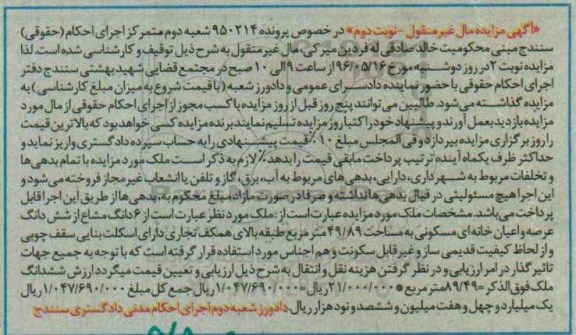 «آگهی مزایده مال غیر منقول -نوبت دوم» در خصوص پرونده ۹۵۰۲۱۴ شعبه دوم متمرکز اجرای احکام (حقوقی)
سنندج مبنی محکومیت خالد صادقی له فردین میرکی، مال غیر منقول به شرح ذیل توقیف و کارشناسی شده است. لذا
مزایده نوبت ۲ در روز دوشنبه مورخ ۹۶/۰۵/۱۶ از ساعت ۹ الی ۱۰ صبح در مجتمع قضایی شهید بهشتی سنندج دفتر
اجرای احکام حقوقی با حضور نماینده دادسرای عمومی و دادورز شعبه (با قیمت شروع به میزان مبلغ کارشناسی) به
مزایده گذاشته می شود. طالبین می توانند پنج روز قبل از روز مزایده با کسب مجوز از اجرای احکام حقوقی از مال مورد
مزایده بازدید بعمل آورند و پیشنهاد خود را کتبا روز مزایده تسلیم نمایند برنده مزایده کسی خواهد بود که بالاترین قیمت
را روز برگزاری مزایده بپردازد و فی المجلس مبلغ ۱۰٪ قیمت پیشنهادی را به حساب سپرده دادگستری واریز نماید و
حداکثر ظرف یکماه آینده ترتیب پرداخت مابقی قیمت را بدهد٪ لازم به ذکر است ملک مورد مزایده با تمام بدهی ها
و تخلفات مربوط به شهرداری، دارایی، بدهی های مربوط به آب، برق، گاز و تلفن یا انشعاب غیر مجاز فروخته می شود و
این اجرا هیچ مسئولیتی در قبال بدهی ها نداشته و صرفا در صورت مازاد، مبلغ محکوم به، بدهی ها از طریق این اجرا قابل
پرداخت می باشد. مشخصات ملک مورد مزایده عبارت است از: ملک مورد نظر عبارت است از ۶ دانگ مشاع از شش دانگ
عرصه و اعیان خانه ای مسکونی به مساحت ۴۹/۸۹ متر مربع طبقه بالای همکف تجاری دارای اسکلت بنایی سقف چوبی
و از لحاظ کیفیت قدیمی ساز و غیر قابل سکونت و هم اجناس مورد استفاده قرار گرفته است که با توجه به جمیع جهات
تاثیر گذار در امر ارزیابی و در نظر گرفتن هزینه نقل و انتقال به شرح ذیل ارزیابی و تعیین قیمت میگردد ارزش ششدانگ
ملک فوق الذکر =۸۹/۴۹ متر مربع*۲۱/۰۰۰/۰۰۰ ریال=۱/۰۴۷/۶۹۰/۰۰۰ ریال جمع کل مبلغ ۱/۰۴۷/۶۹۰/۰۰۰ ریال
یک میلیارد و چهل و هفت میلیون و ششصد و نود هزار ریال. دادورز شعبه دوم اجرای احکام مدنی دادگستری سنندج